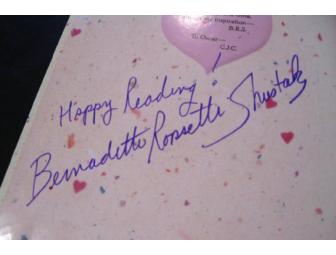 my inspiration—
B.R.S.
To Oscar—
C.J.C.
Happy Reading!
Bernadette Rossetti Shustak